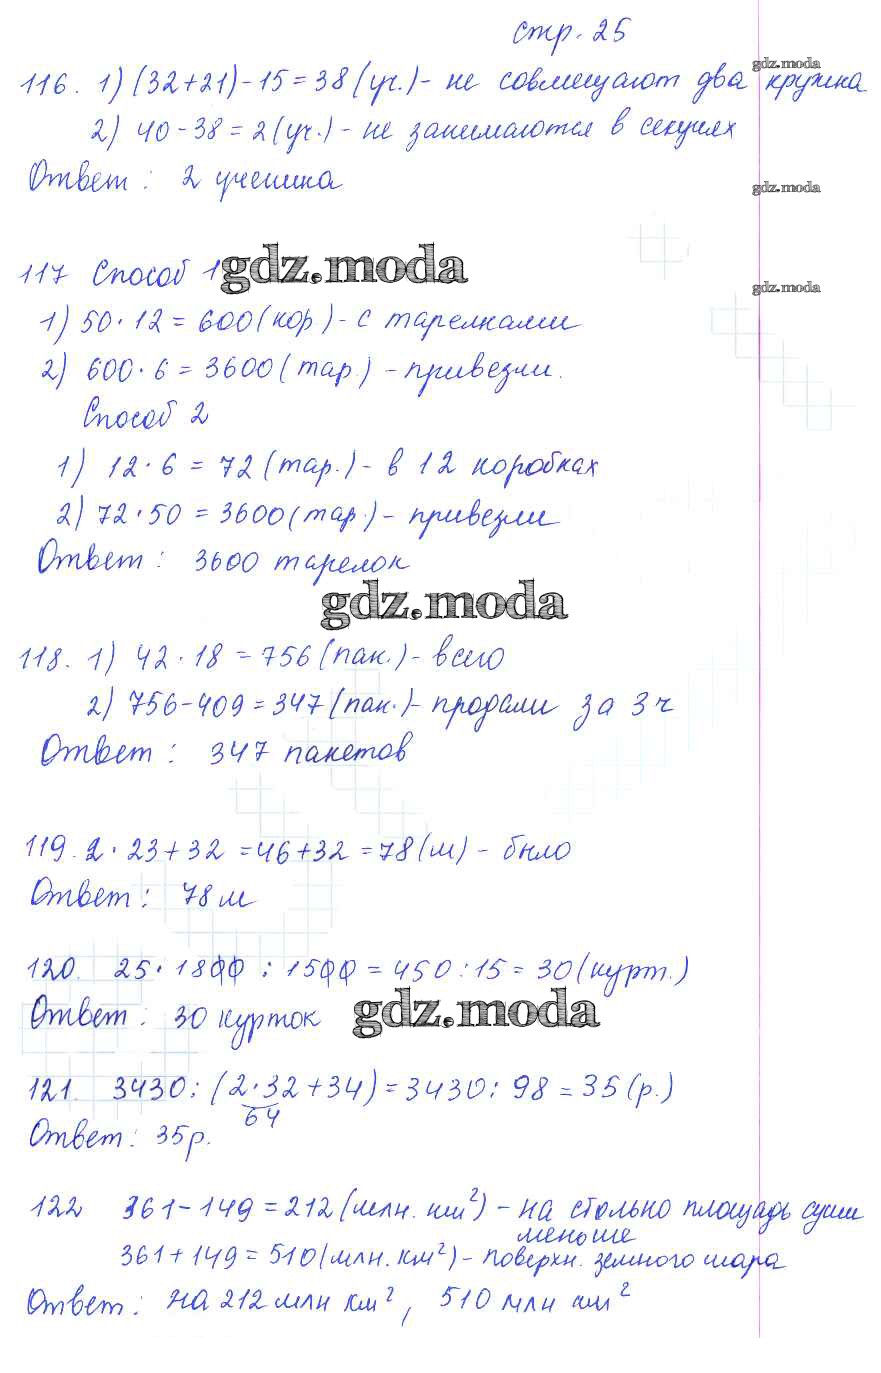 стр. 25
gdz.moda
116. 1) (32+21)-15=38(уч.)- не совмещают два кружка
2) 40-38=2(уч.)- не занимаются в секциях
Ответ: 2 ученика
gdz.moda
117 Способ 1
gdz.moda
gdz.moda
1) 50·12=600(кор)- с тарелками
2) 600·6=3600(тар.) - привезли.
Способ 2
1) 12·6=72(тар.)- в 12 коробках
2) 72·50=3600(тар.)- привезли
Ответ: 3600 тарелок
gdz.moda
118. 1) 42·18=756(пак.)- всего
2) 756-409=347(пак.)- продали за 3ч
Ответ: 347 пакетов
119. 2·23+32=46+32=78(м) - было
Ответ: 78м
120. 25·1800:1500=450:15=30(курт.)
Ответ: 30 курток
gdz.moda
121. 3430:(2·32+34)=3430:98=35(р.)
64
Ответ: 35р.
122 361-149=212(млн. км²)- на столько площадь суши
меньше
361+149=510(млн. км²)- поверхн. земного шара
Ответ: на 212 млн км², 510 млн км²